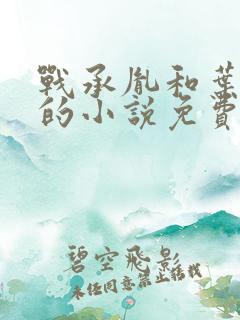 戰承胤和葉
的小說免費
碧空飛影
未经同意禁止转载